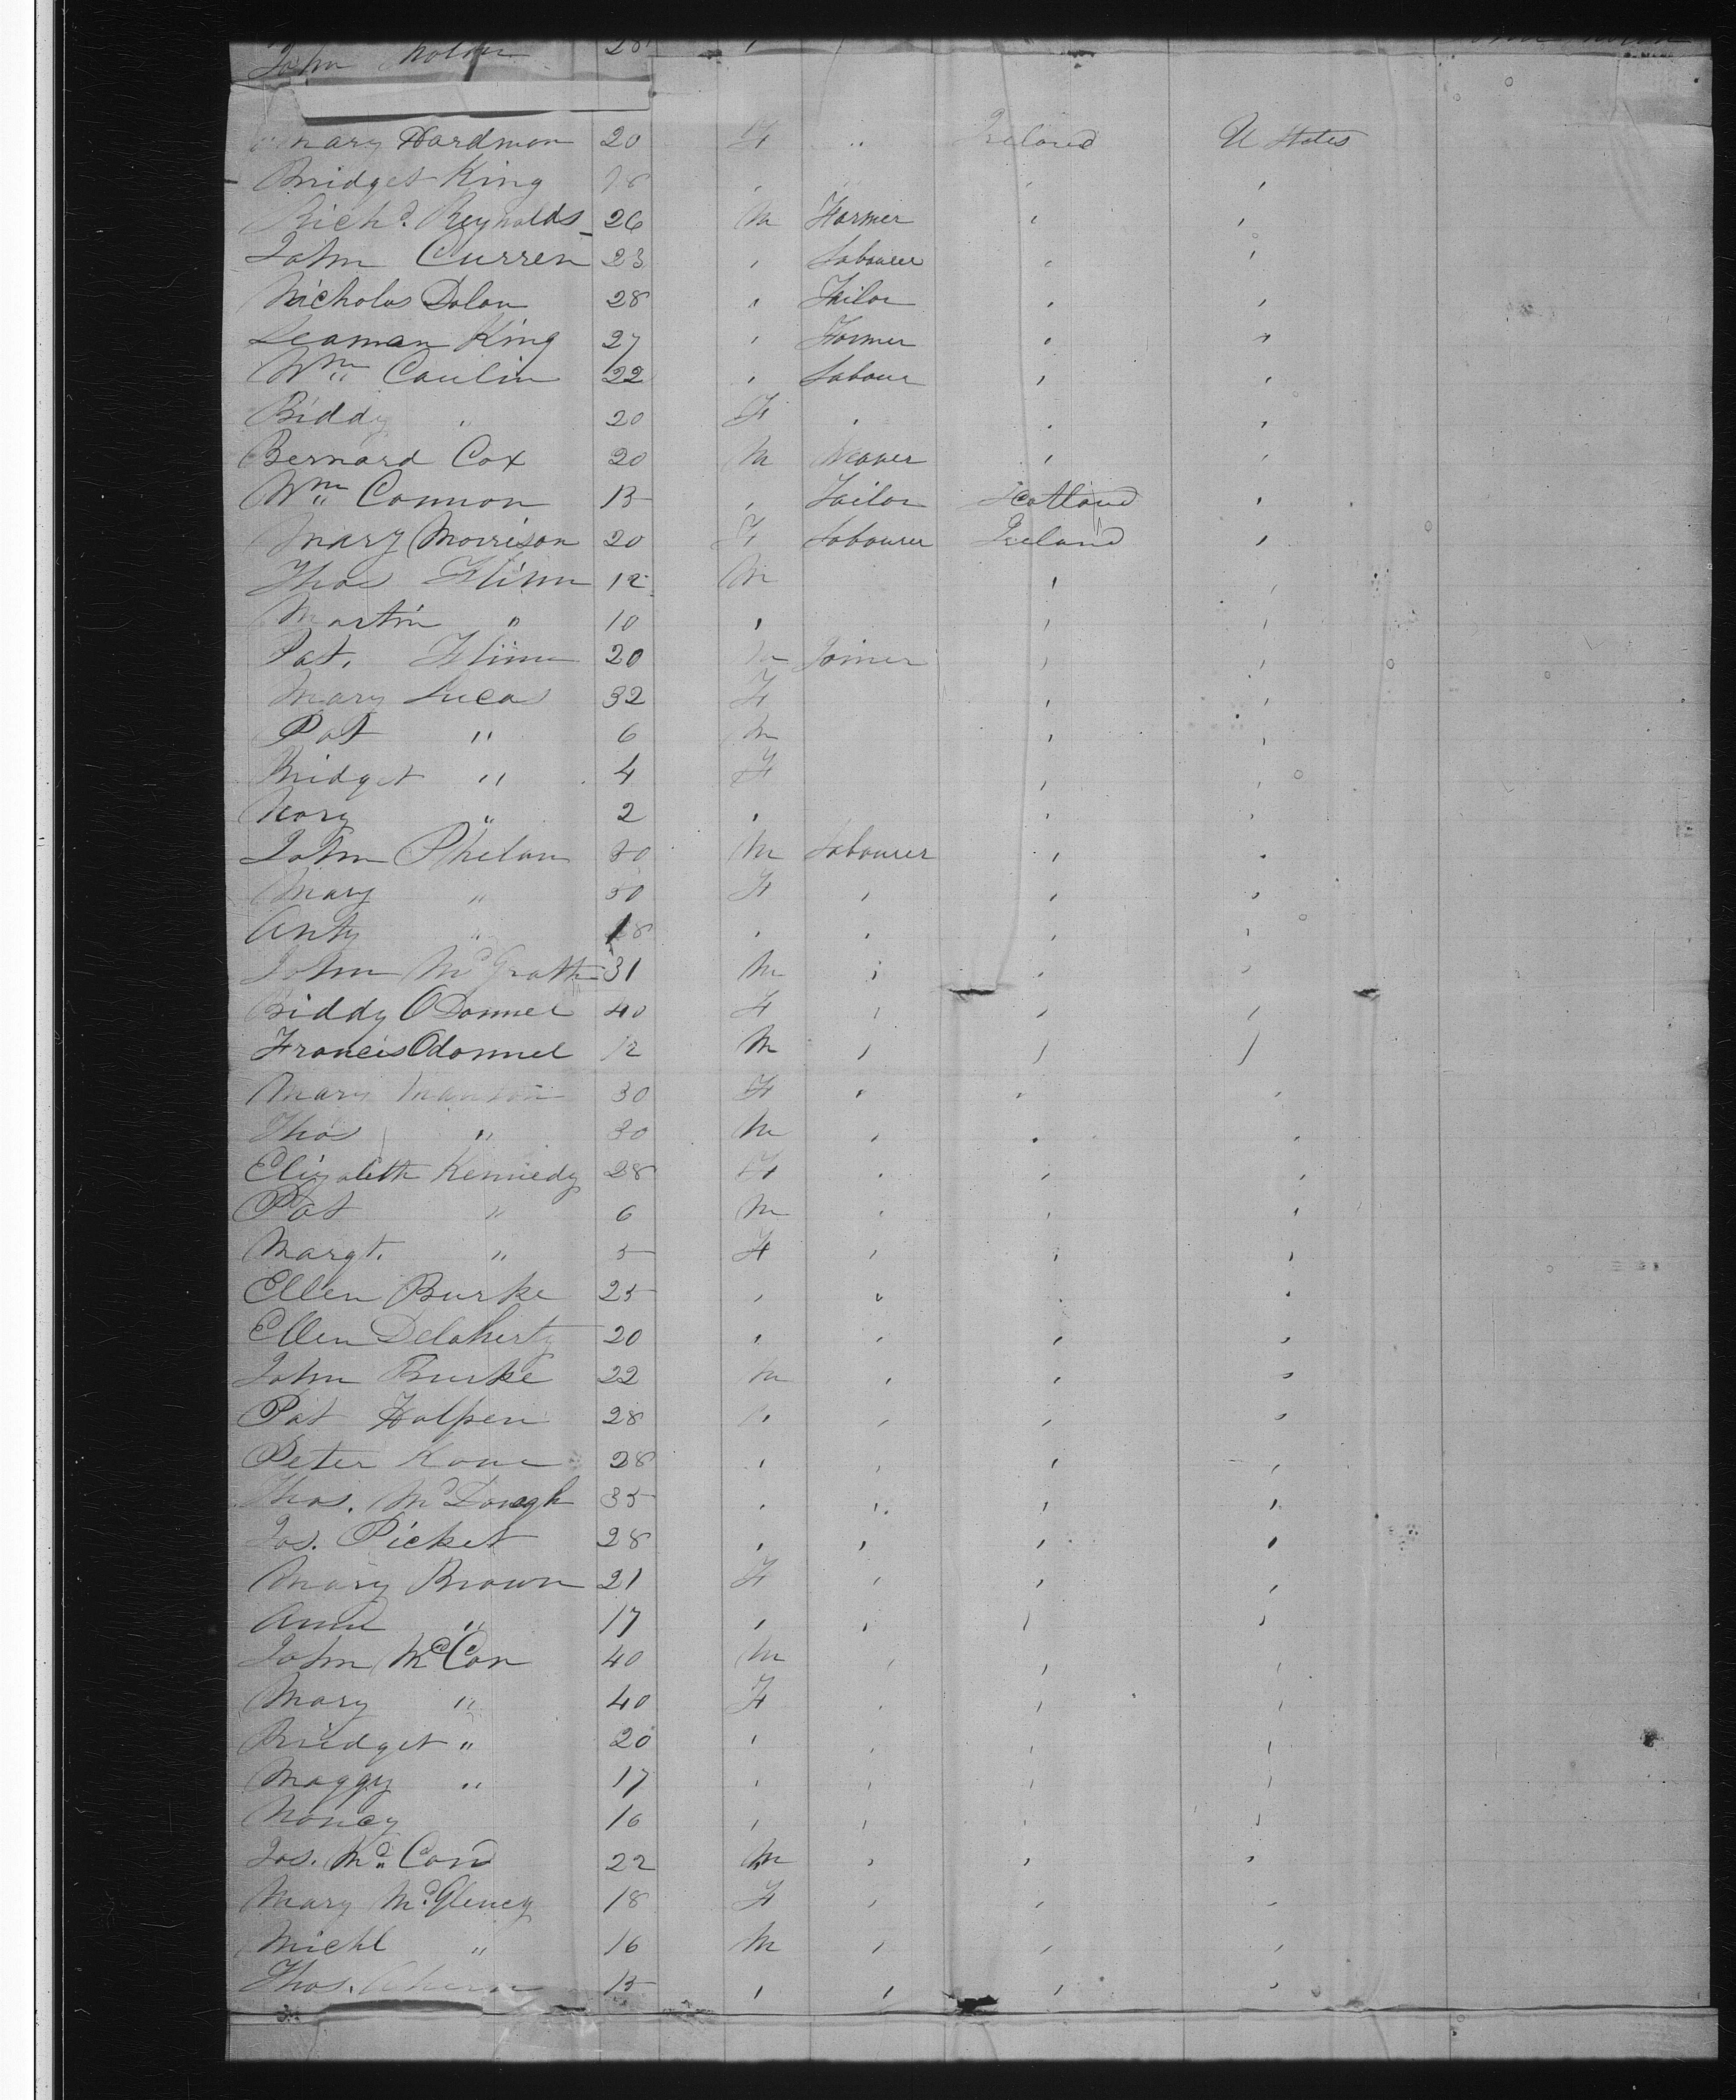 John 28
Mary Hardmon 20 F " Ireland U States
Bridget King 18 , , ,
Richd. Reynolds 26 M Farmer , ,
John Curren 23 , Labourer , ,
Nicholas Dolan 28 , Tailor , ,
Seaman King 27 , Farmer , ,
Wm Caulin 22 , Labour , ,
Biddy " 20 F , , ,
Bernard Cox 20 M Weaver , ,
Wm Connon 15 , Tailor Scotland ,
Mary Morrison 20 F Labourer Ireland ,
Thos Flinn 12 M , ,
Martin " 10 , , ,
Pat. Flinn 20 M Joiner , ,
Mary Lucas 32 F , ,
Pat " 6 M , ,
Bridget " 4 F , ,
Nory " 2 , , ,
John Phelan 50 M Labourer , ,
Mary " 50 F , , ,
Anty " 18 , , , ,
John McGrath 31 M , , ,
Biddy ODonnel 40 F , , ,
Francis Odonnel 12 M , , ,
Mary 30 F , , ,
Thos " 30 M , , ,
Elizabeth Kennedy 28 F , , ,
Pat " 6 M , , ,
Margt. " 5 F , , ,
Ellen Burke 25 , , , ,
Ellen Delaherty 20 , , , ,
John Burke 22 M , , ,
Pat Halpen 28 , , , ,
Peter Kane 28 , , , ,
Thos. McDonogh 35 , , , ,
Jas. Picket 28 , , , ,
Mary Brown 21 F , , ,
Anne " 17 , , , ,
John McCon 40 M , , ,
Mary " 40 F , , ,
Bridget " 20 , , , ,
Maggy " 17 , , , ,
Noncy 16 , , , ,
Jas. McCon 22 M , , ,
Mary McGlency 18 F , , ,
Michl " 16 M , , ,
Thos. Ahern 15 , , , ,